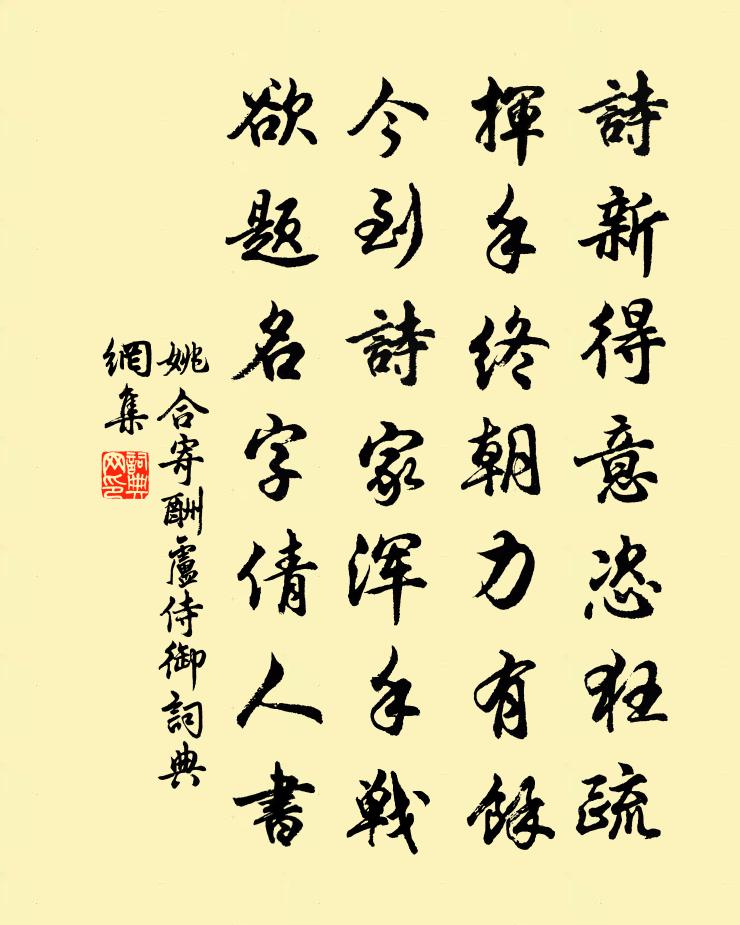 詩新得意恣狂疏
揮手終朝力有餘
今到詩家浑手戦
欲題名字倩人書
姚合寄酬盧侍御詞典
網集
詞典网印